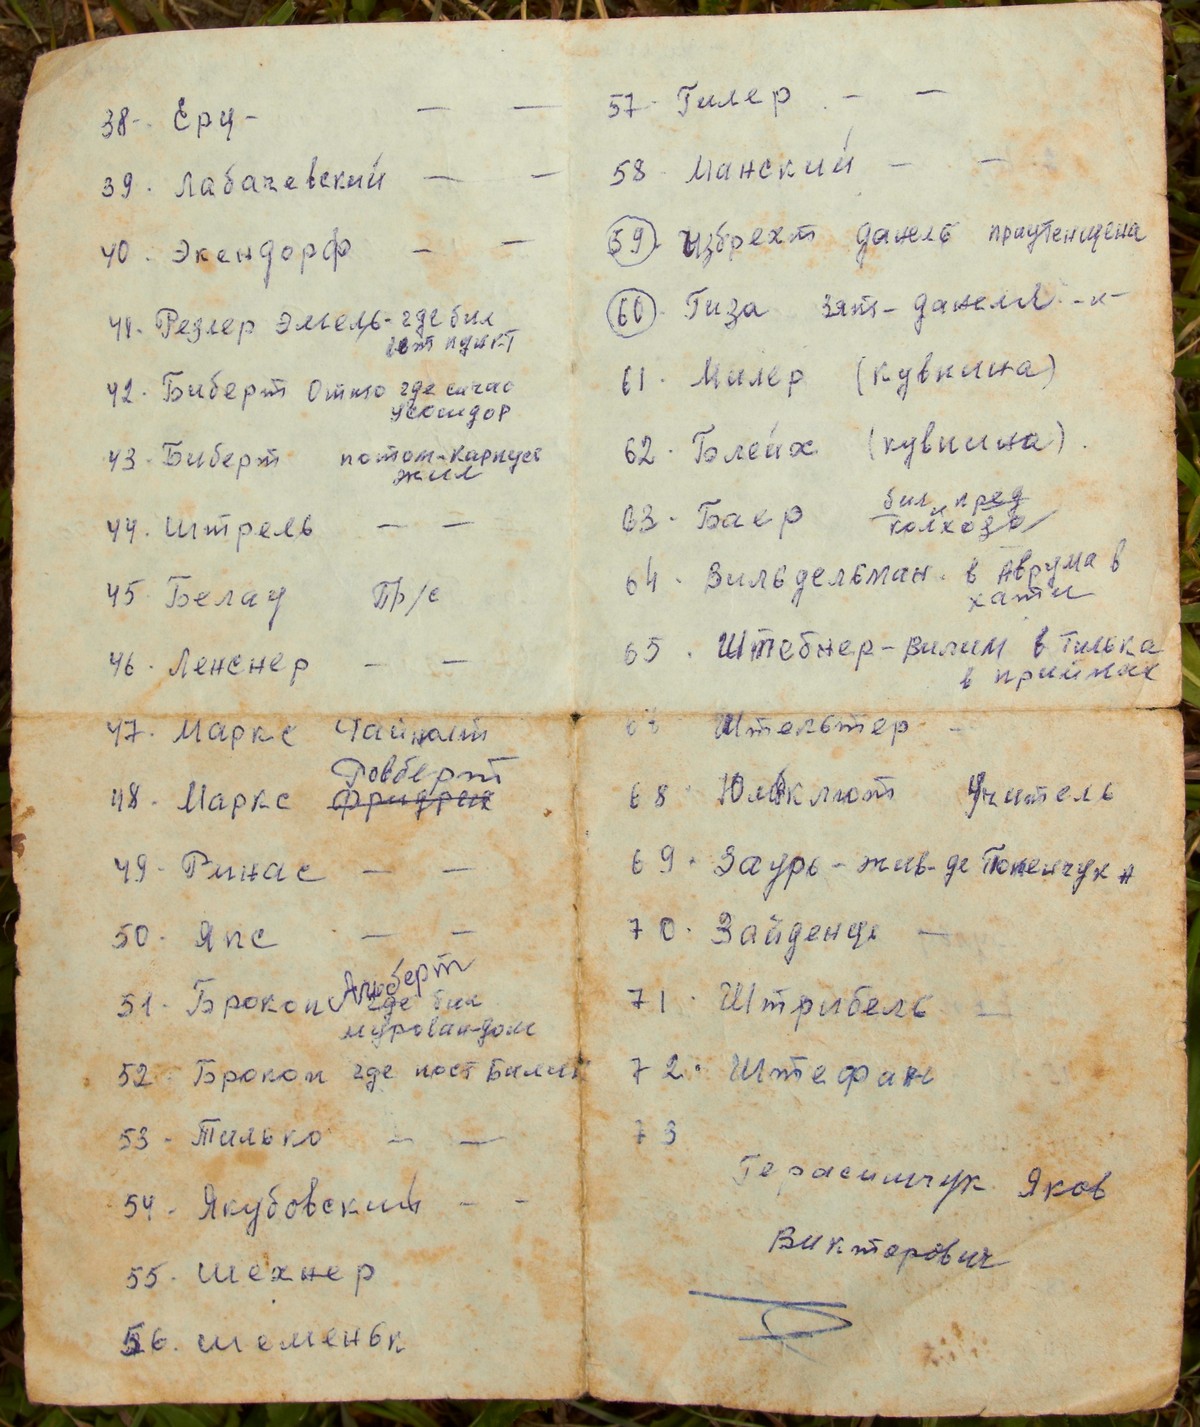 38. Еру -  —  —
39. Лабачевский  —  —
40. Экендорф  —  —
41. Резлер Эмель - где бил
пункт
42. Биберт Отто где сичас
43. Биберт потом-Карпусь
жил
44. Штрель  —  —
45. Белау  Пр/с
46. Ленснер  —  —
47. Маркс
48. Маркс Ровберт
Фридрих
49. Ринас  —  —
50. Япс  —  —
51. Брокоп Альберт
где бил
мурован-дом
52. Брокоп где пост
53. Тилько  —  —
54. Якубовский  —  —
55. Шехнер
56. Шеменьк
57. Гилер  —  —
58. Манский  —  —
59. Избрехт
60. Гиза зят-
61. Милер (кувпина)
62. Блейх (кувпина).
63. Баер бил пред
колхоза
64. Вильдельман. в Аврума в
хати
65. Штебнер - Вилим в Тилька
в приймах
Штекьтер  —
68. Учитель
69. Заурь - жив-де
70.  —
71. Штрибель  —
72. Штефан
73
Герасимчук Яков
Викторович